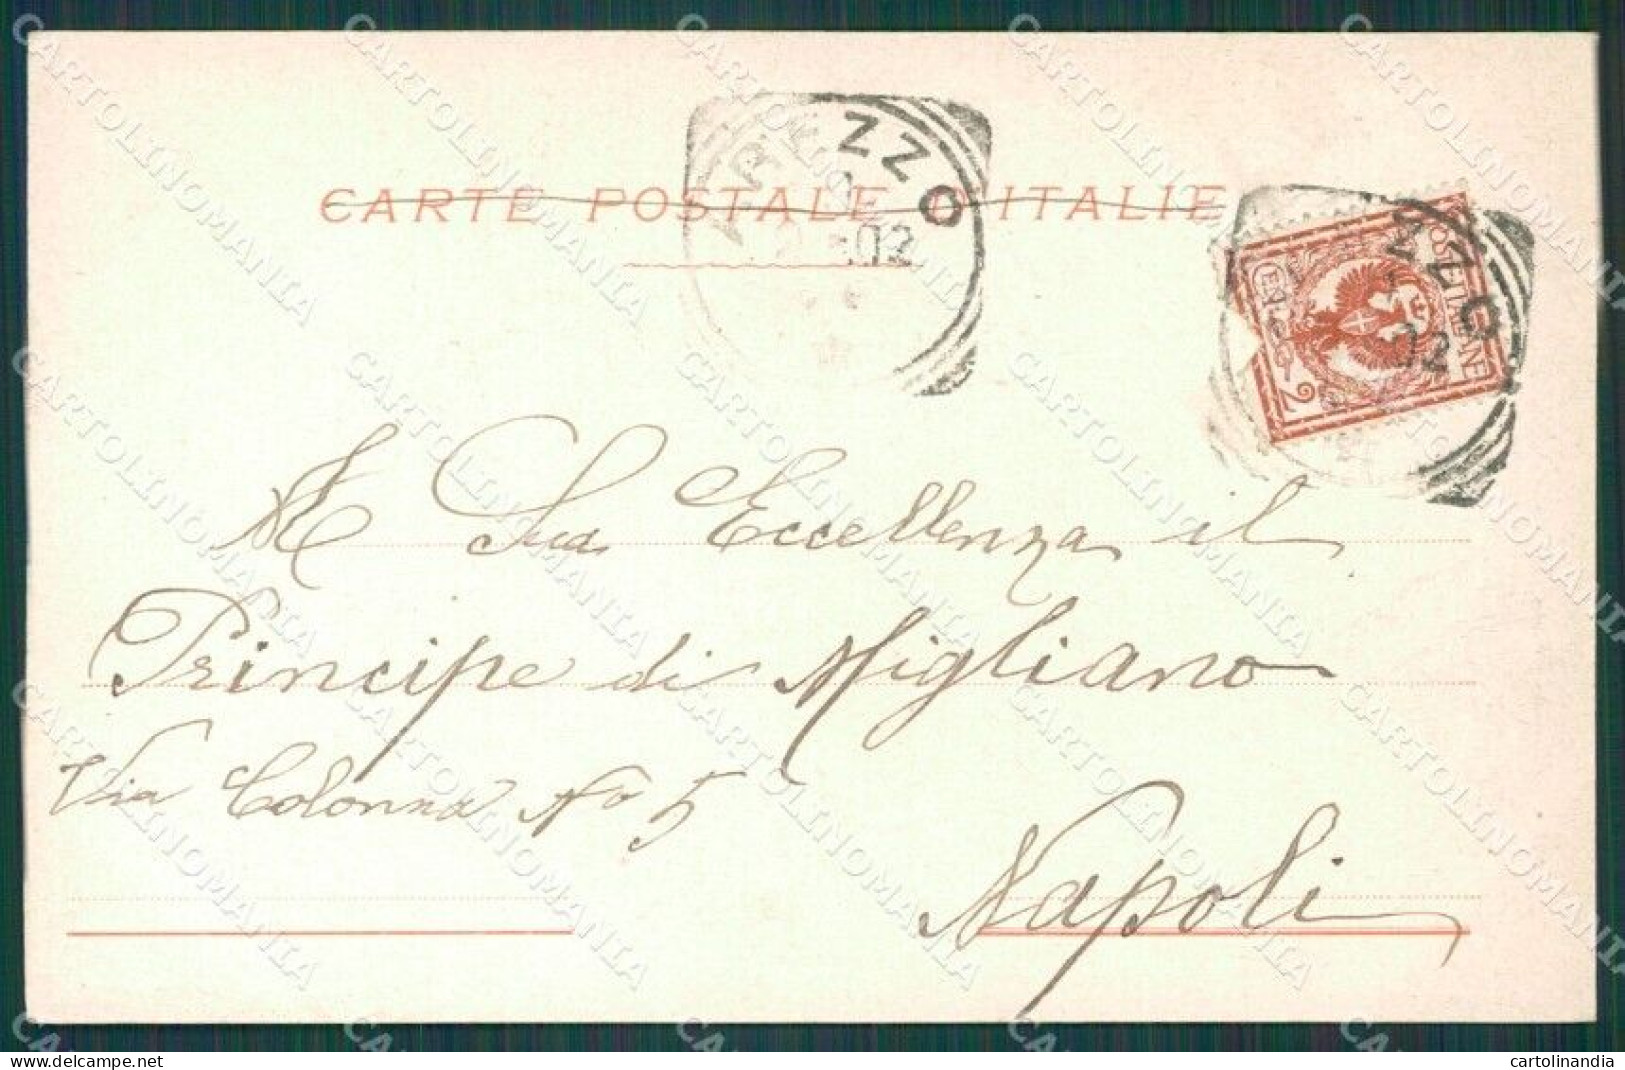 CARTE POSTALE D'ITALIE
AREZZO
02
POSTE ITALIANE
CENT. 2
ZZO
02
A Sua Eccellenza il
Principe di Migliano
Via Colonna No 5
Napoli
CARTOLINOMANIA
delcampe.net
cartolinandia